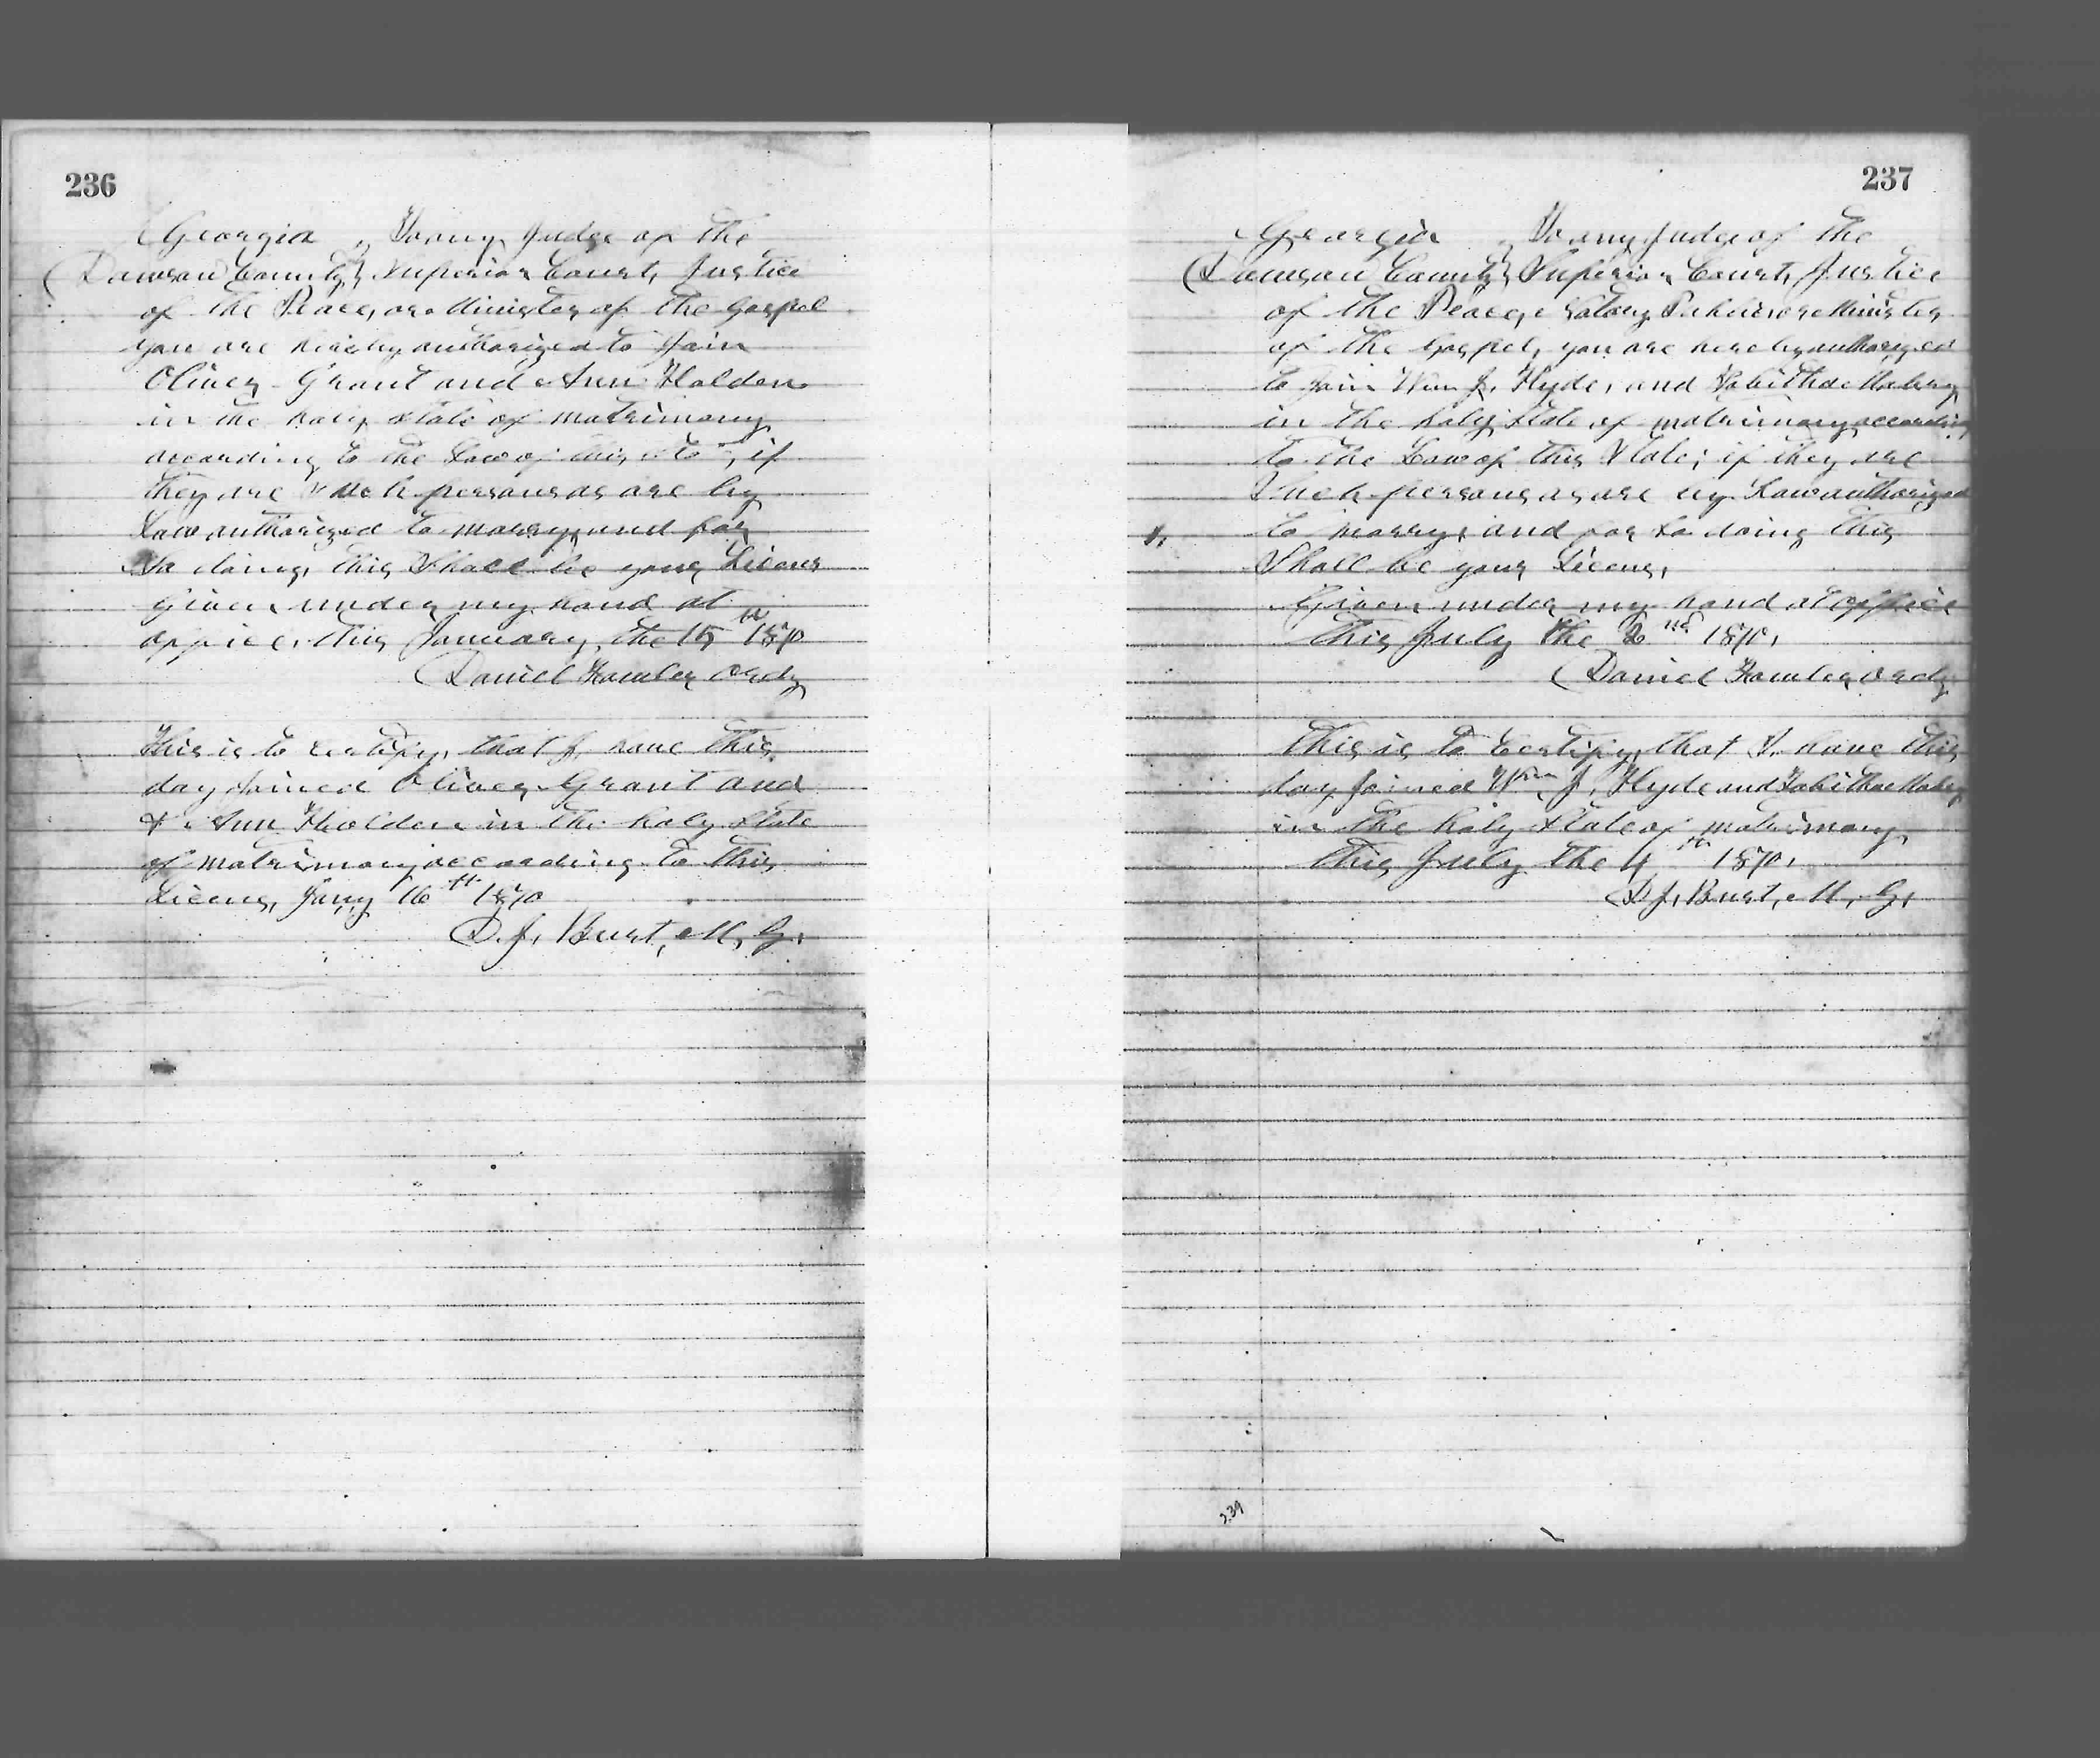 236
Georgia } To any Judge of the
Dawson County } Superior Court, Justice
of the Peace, or a Minister of the Gospel
you are hereby authorized to Join
Oliver Grant and Ann Holden
in the holy state of matrimony
according to the Law of this State, if
they are Such persons as are by
Law authorized to marry, and for
So doing, this Shall be your Licens
Given under my hand at
office, this January, the 15th 1870
Daniel Fowler Ordy
This is to certify, that I have this
day Joined Oliver Grant and
Ann Holden in the holy State
of matrimony according to this
Licens, Jany 16th 1870
D. J. Burt, M, G,
237
Georgia } To any Judge of the
Dawson County } Superior Court, Justice
of the Peace, Notary Public or a Minister
of the Gospel, you are hereby authorized
to Join Wm J, Hyde, and Tabitha
in the holy State of matrimony according
to the Law of this State; if they are
Such persons as are by Law authorized
to marry, and for So doing this
Shall be your Licens,
Given under my hand at office
this July the 2nd 1870,
Daniel Fowler, Ordy
This is to Certify, that I have this
day Joined Wm J, Hyde and Tabitha
in the holy State of matrimony,
this July the 4th 1870,
D. J, Burt, M, G,
239